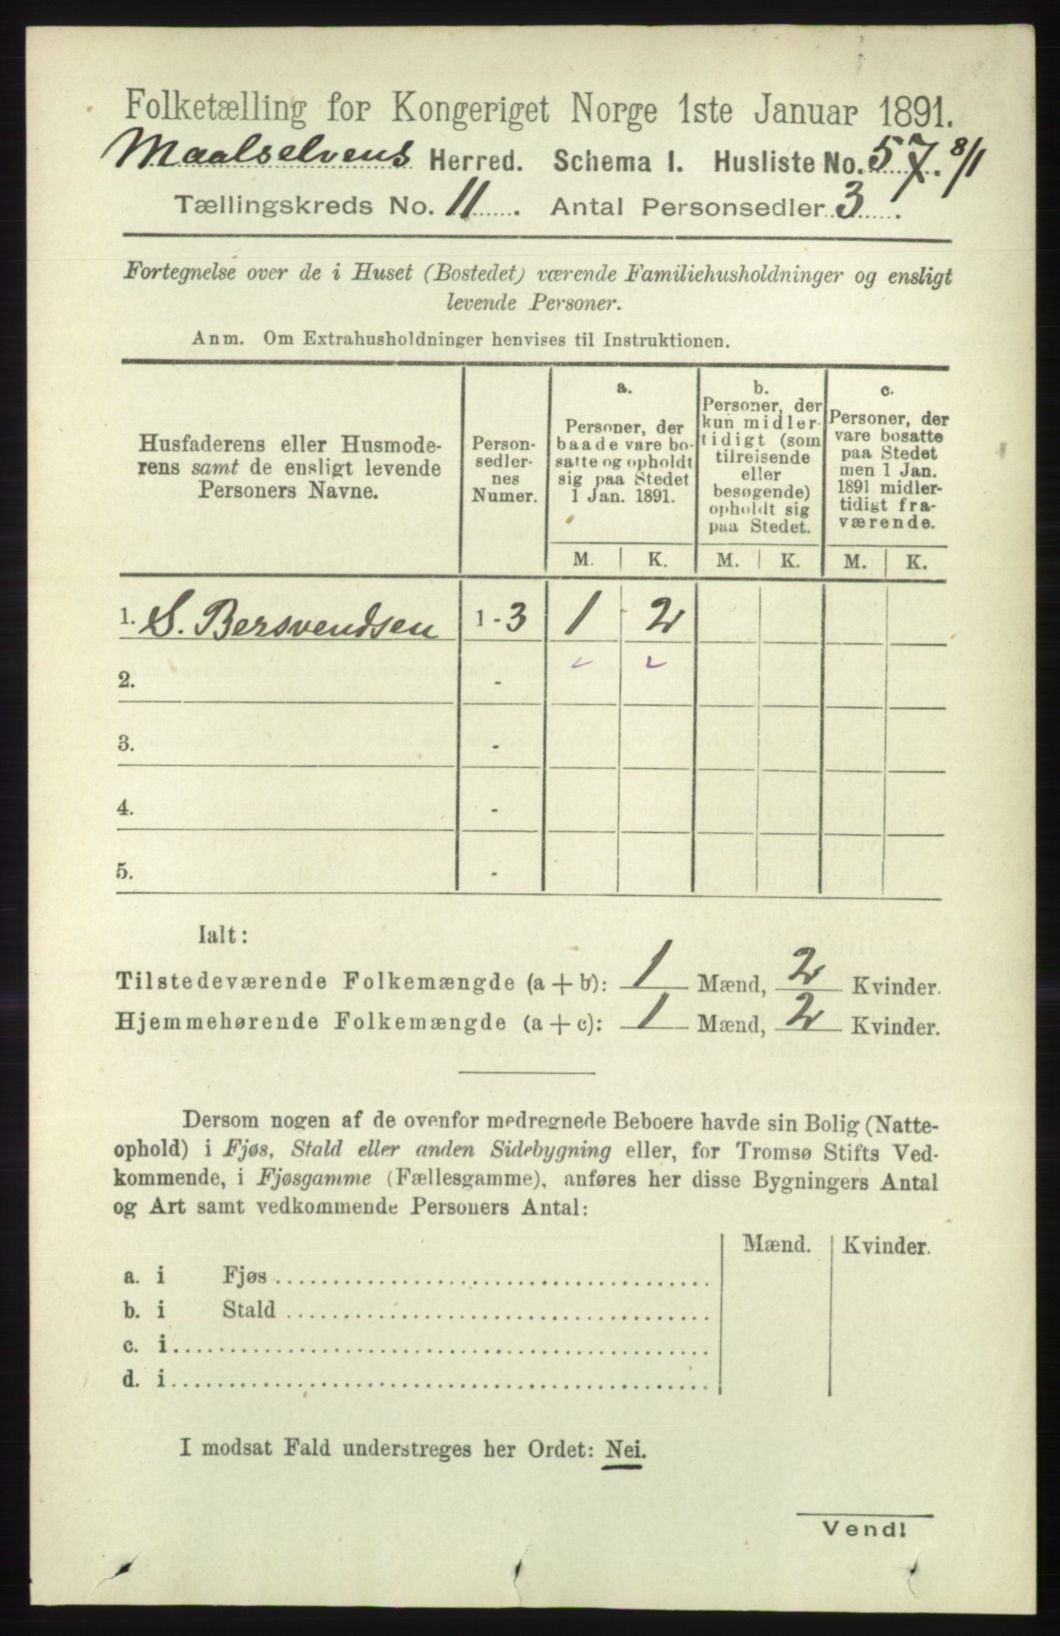 Folketælling for Kongeriget Norge 1ste Januar 1891.
Maalselvens Herred. Schema I. Husliste No. 57. 8/1
Tællingskreds No. 11. Antal Personsedler 3.
Fortegnelse over de i Huset (Bostedet) værende Familiehusholdninger og ensligt
levende Personer.
Anm. Om Extrahusholdninger henvises til Instruktionen.
Husfaderens eller Husmode-
rens samt de ensligt levende
Personers Navne.
Person-
sedler-
nes
Numer.
a.
Personer, der
baade vare bo-
satte og opholdt
sig paa Stedet
1 Jan. 1891.
b.
Personer, der
kun midler-
tidigt (som
tilreisende
eller
besøgende)
opholdt sig
paa Stedet.
c.
Personer, der
vare bosatte
paa Stedet
men 1 Jan.
1891 midler-
tidigt fra-
værende.
M. K. M. K. M. K.
1. S. Bersvendsen 1-3 1 2
2. -
3. -
4. -
5. -
Ialt:
Tilstedeværende Folkemængde (a + b): 1 Mænd, 2 Kvinder.
Hjemmehørende Folkemængde (a + c): 1 Mænd, 2 Kvinder.
Dersom nogen af de ovenfor medregnede Beboere havde sin Bolig (Natte-
ophold) i Fjøs, Stald eller anden Sidebygning eller, for Tromsø Stifts Ved-
kommende, i Fjøsgamme (Fællesgamme), anføres her disse Bygningers Antal
og Art samt vedkommende Personers Antal:
Mænd. Kvinder.
a. i Fjøs
b. i Stald
c. i
d. i
I modsat Fald understreges her Ordet: Nei.
Vend!